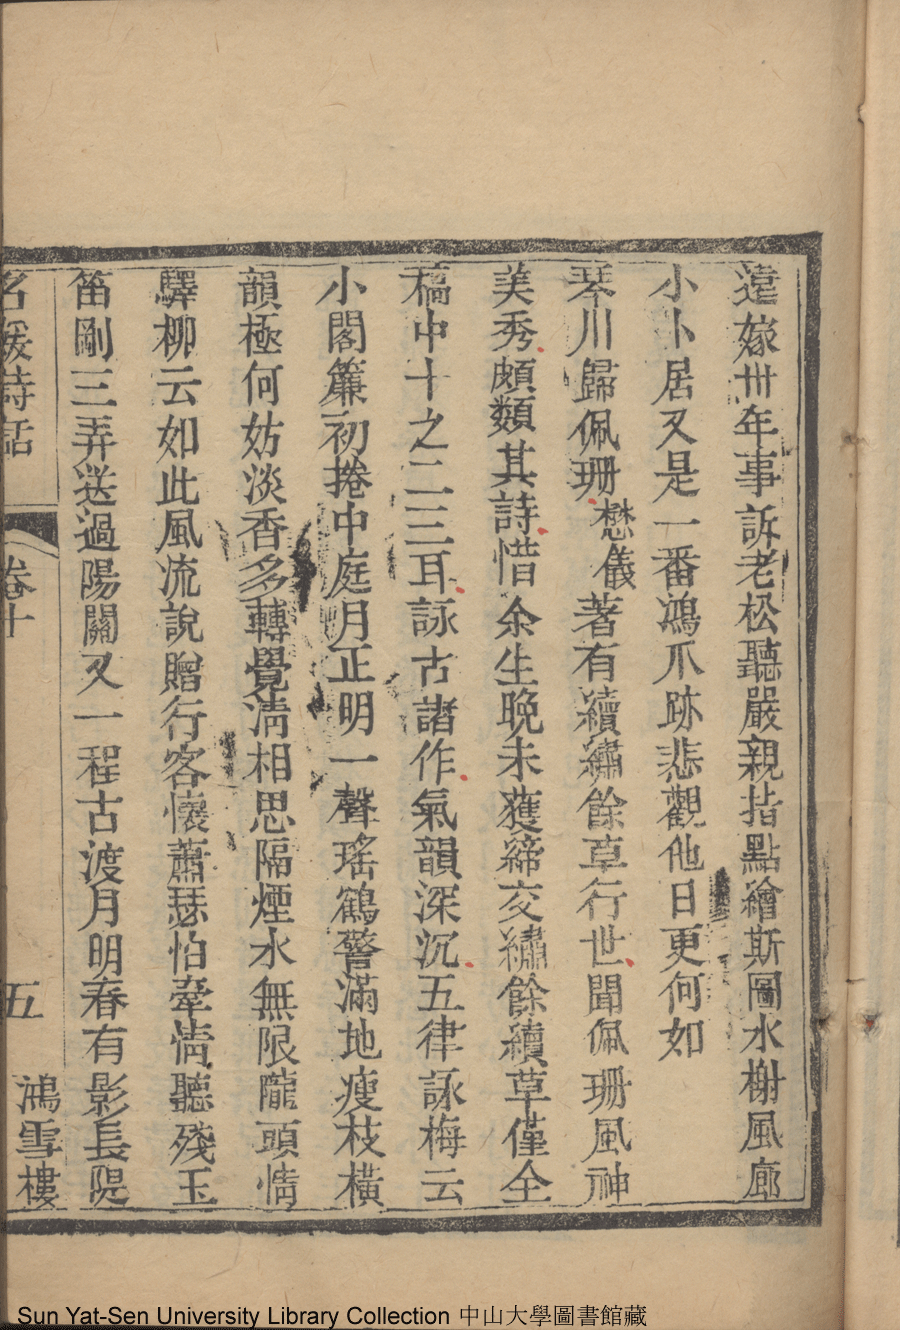 遠嫁卅年事訴老松聽嚴親指點繪斯圖水榭風廊
小卜居又是一番鴻爪跡悲觀他日更何如
琴川歸佩珊懋儀著有續繡餘草行世聞佩珊風神
美秀頗類其詩惜余生晚未獲締交繡餘續草僅全
稿中十之二三耳詠古諸作氣韻深沉五律詠梅云
小閣簾初捲中庭月正明一聲瑤鶴警滿地瘦枝橫
韻極何妨淡香多轉覺清相思隔煙水無限隴頭情
驛柳云如此風流說贈行客懷蕭瑟怕牽情聽殘玉
笛剛三弄送過陽關又一程古渡月明春有影長隄
名媛詩話 卷十 五 鴻雪樓
Sun Yat-Sen University Library Collection 中山大學圖書館藏